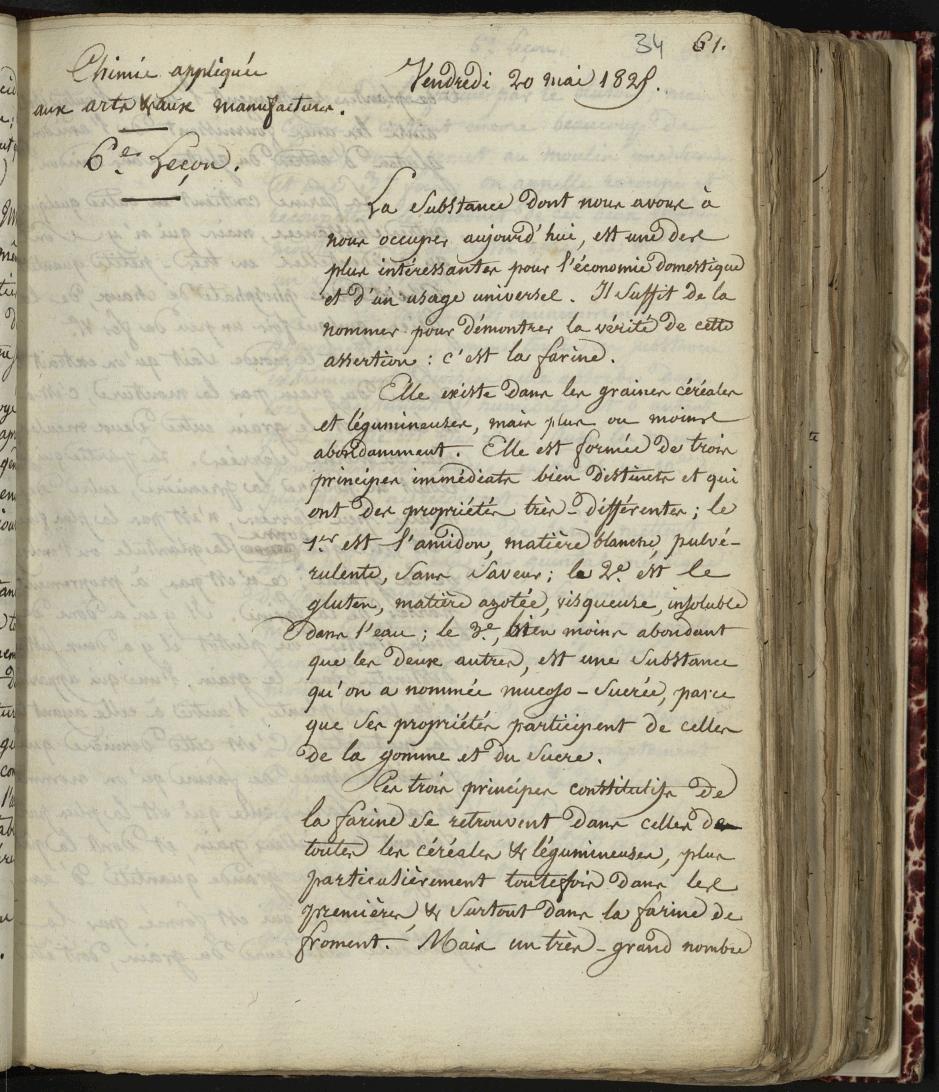 34 61.
Chimie appliquée
aux arts & aux manufactures.
Vendredi 20 mai 1825.
6e. Leçon.
La substance dont nous avons à
nous occuper aujourd'hui, est une des
plus intéressantes pour l'économie domestique
et d'un usage universel. Il suffit de la
nommer pour démontrer la vérité de cette
assertion : c'est la farine.
Elle existe dans les graines céréales
et légumineuses, mais plus ou moins
abondamment. Elle est formée de trois
principes immédiats bien distincts et qui
ont des propriétés très-différentes ; le
1er est l'amidon, matière blanche pulvé-
rulente, sans saveur ; le 2e. est le
gluten, matière azotée, visqueuse, insoluble
dans l'eau ; le 3e., bien moins abondant
que les deux autres, est une substance
qu'on a nommée mucoso-sucrée, parce
que ses propriétés participent de celles
de la gomme et du sucre.
Ces trois principes constitutifs de
la farine se retrouvent dans celles de
toutes les céréales & légumineuses, plus
particulièrement toutefois dans les
premières & surtout dans la farine de
froment. Mais un très-grand nombre